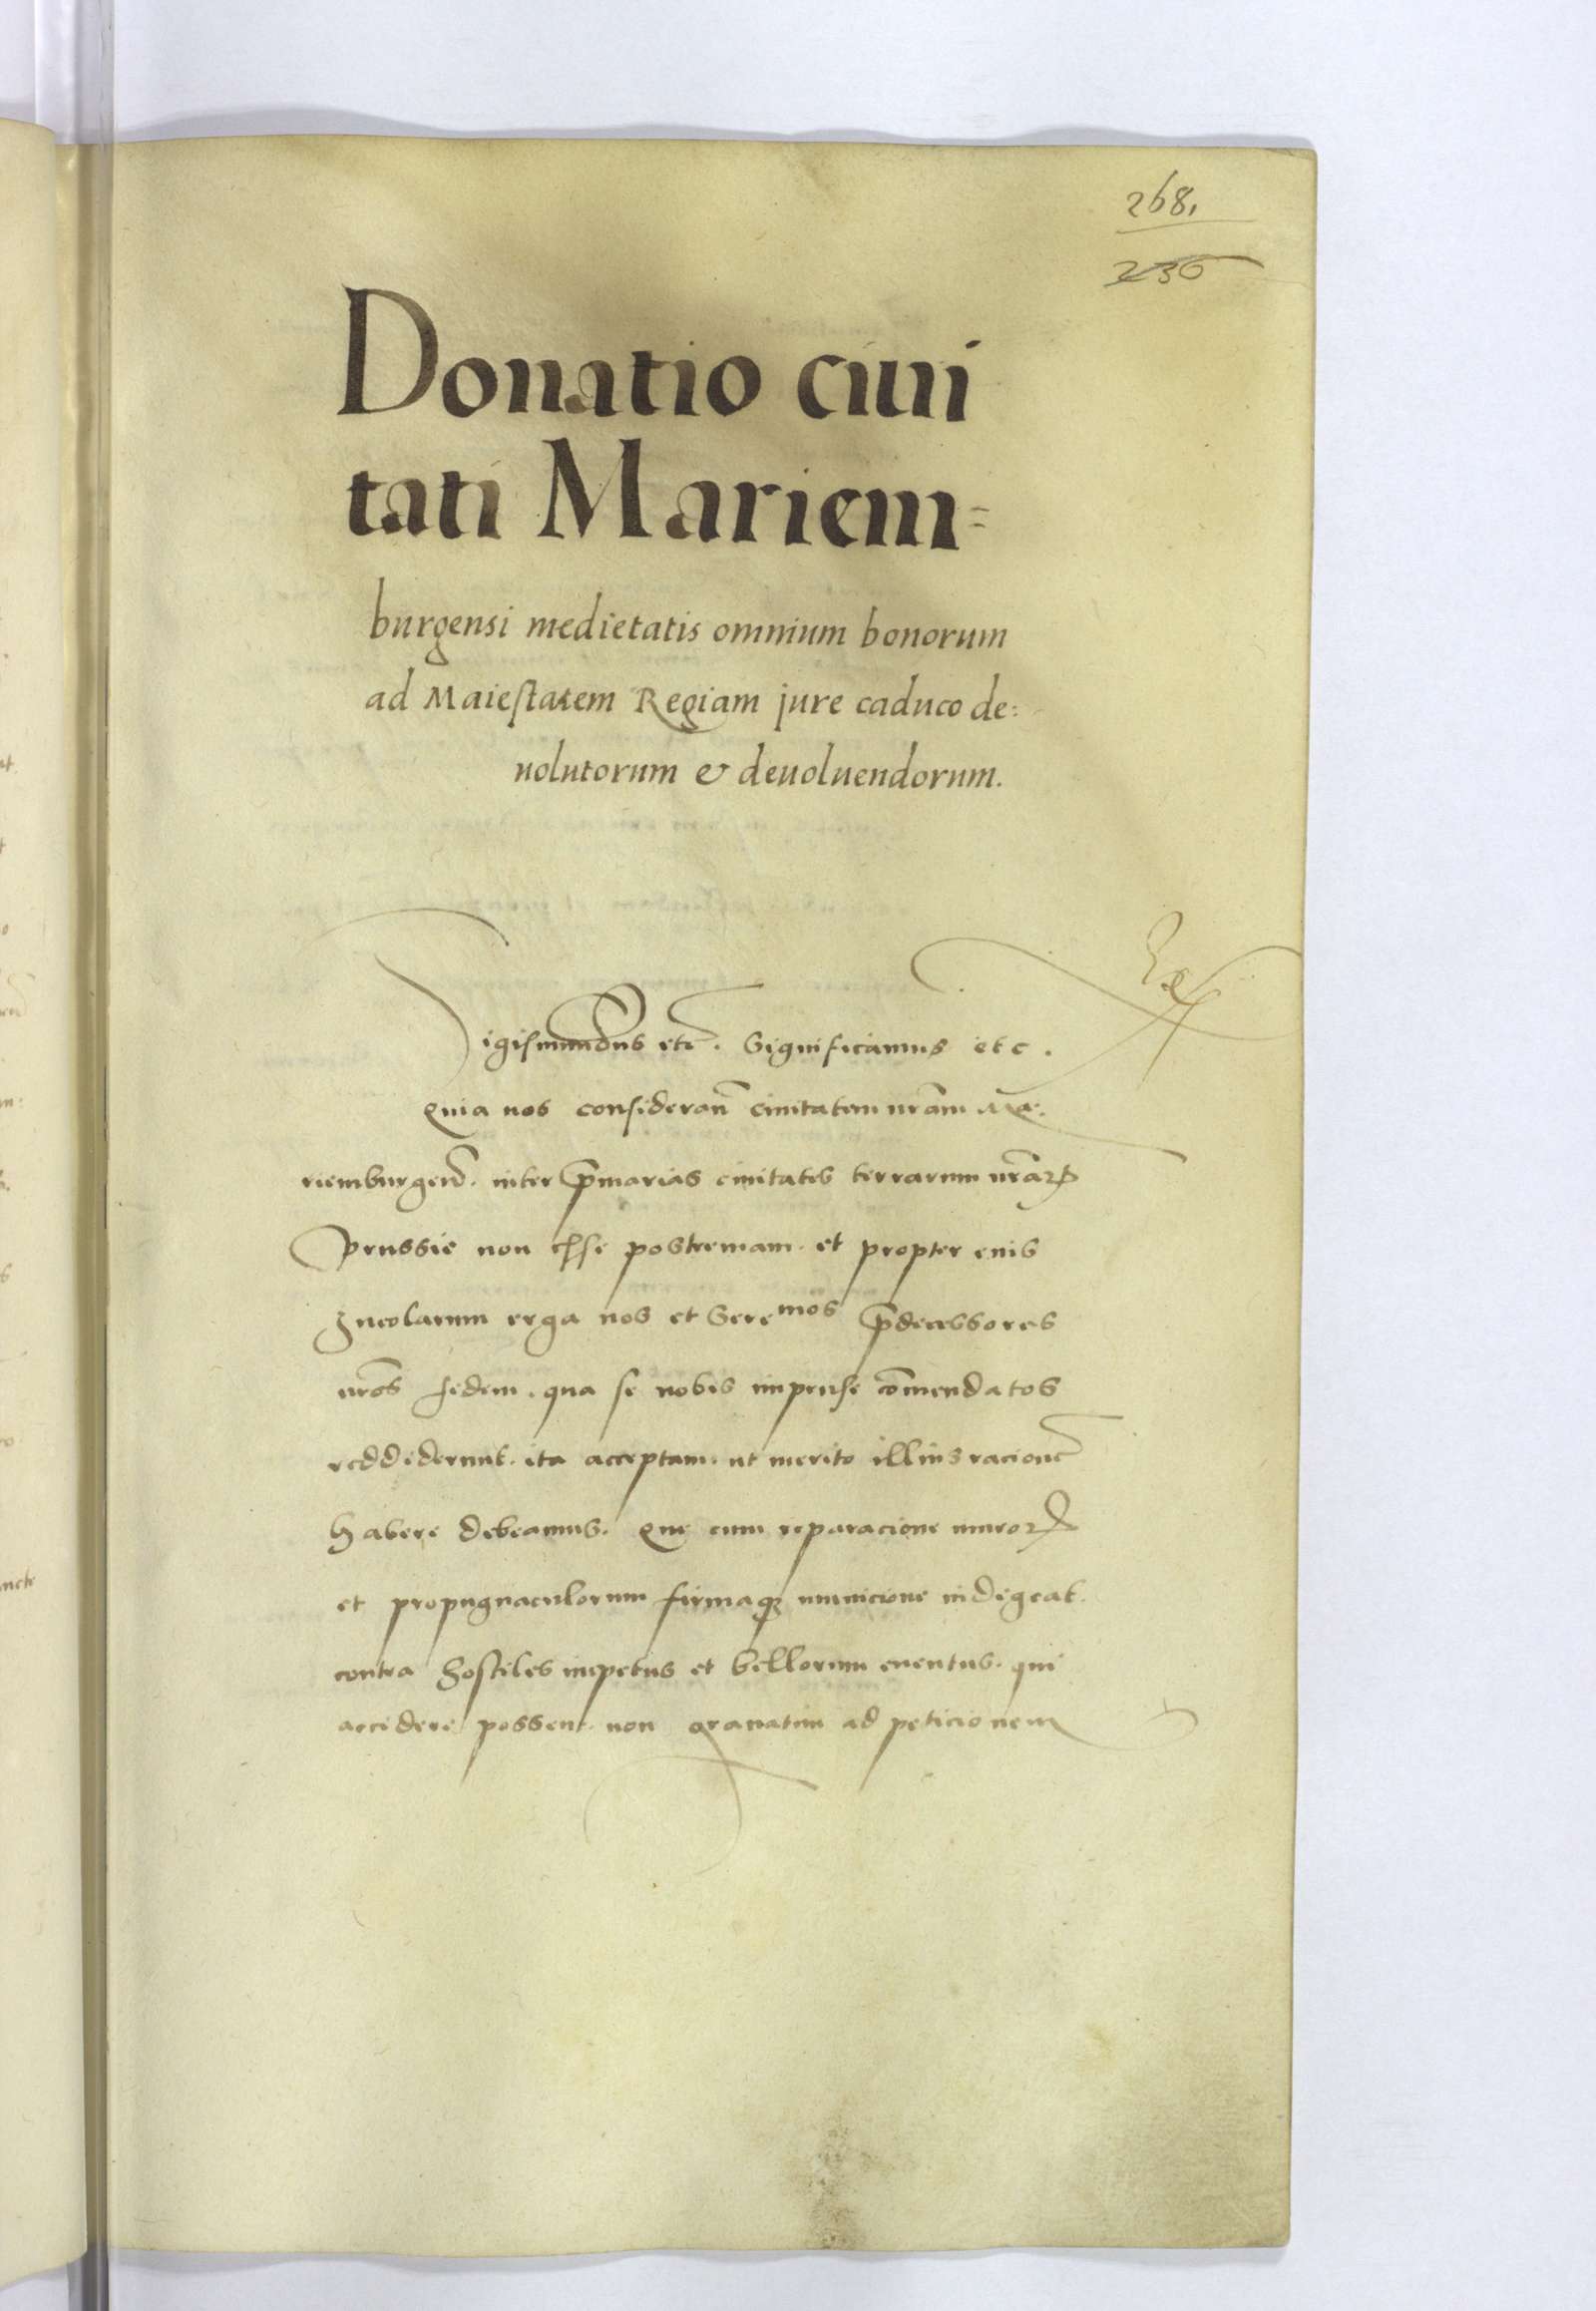 268.
236
Donatio ciui
tati Mariem=
burgensi medietatis omnium bonorum
ad Maiestatem Regiam jure caduco de:
uolutorum & deuoluendorum.
Sigismundus etc. Significamus etc.
Quia nos consideran̄ ciuitatem nr̄am Ma-
riemburgen̄. inter p̄marias ciuitates terrarum nr̄arꝝ
Prussie non esse postremam. et propter eius
Incolarum erga nos et Sere^mos p̄decessores
nr̄os fidem. qua se nobis impense com̄endatos
reddiderunt. ita acceptam. ut merito illius racionē
habere debeamus. Que cum reparacione murorꝝ
et propugnaculorum firmaqꝫ municione indigeat.
contra hostiles impetus et bellorum euentus. qui
accidere possent. non grauatim ad peticionem